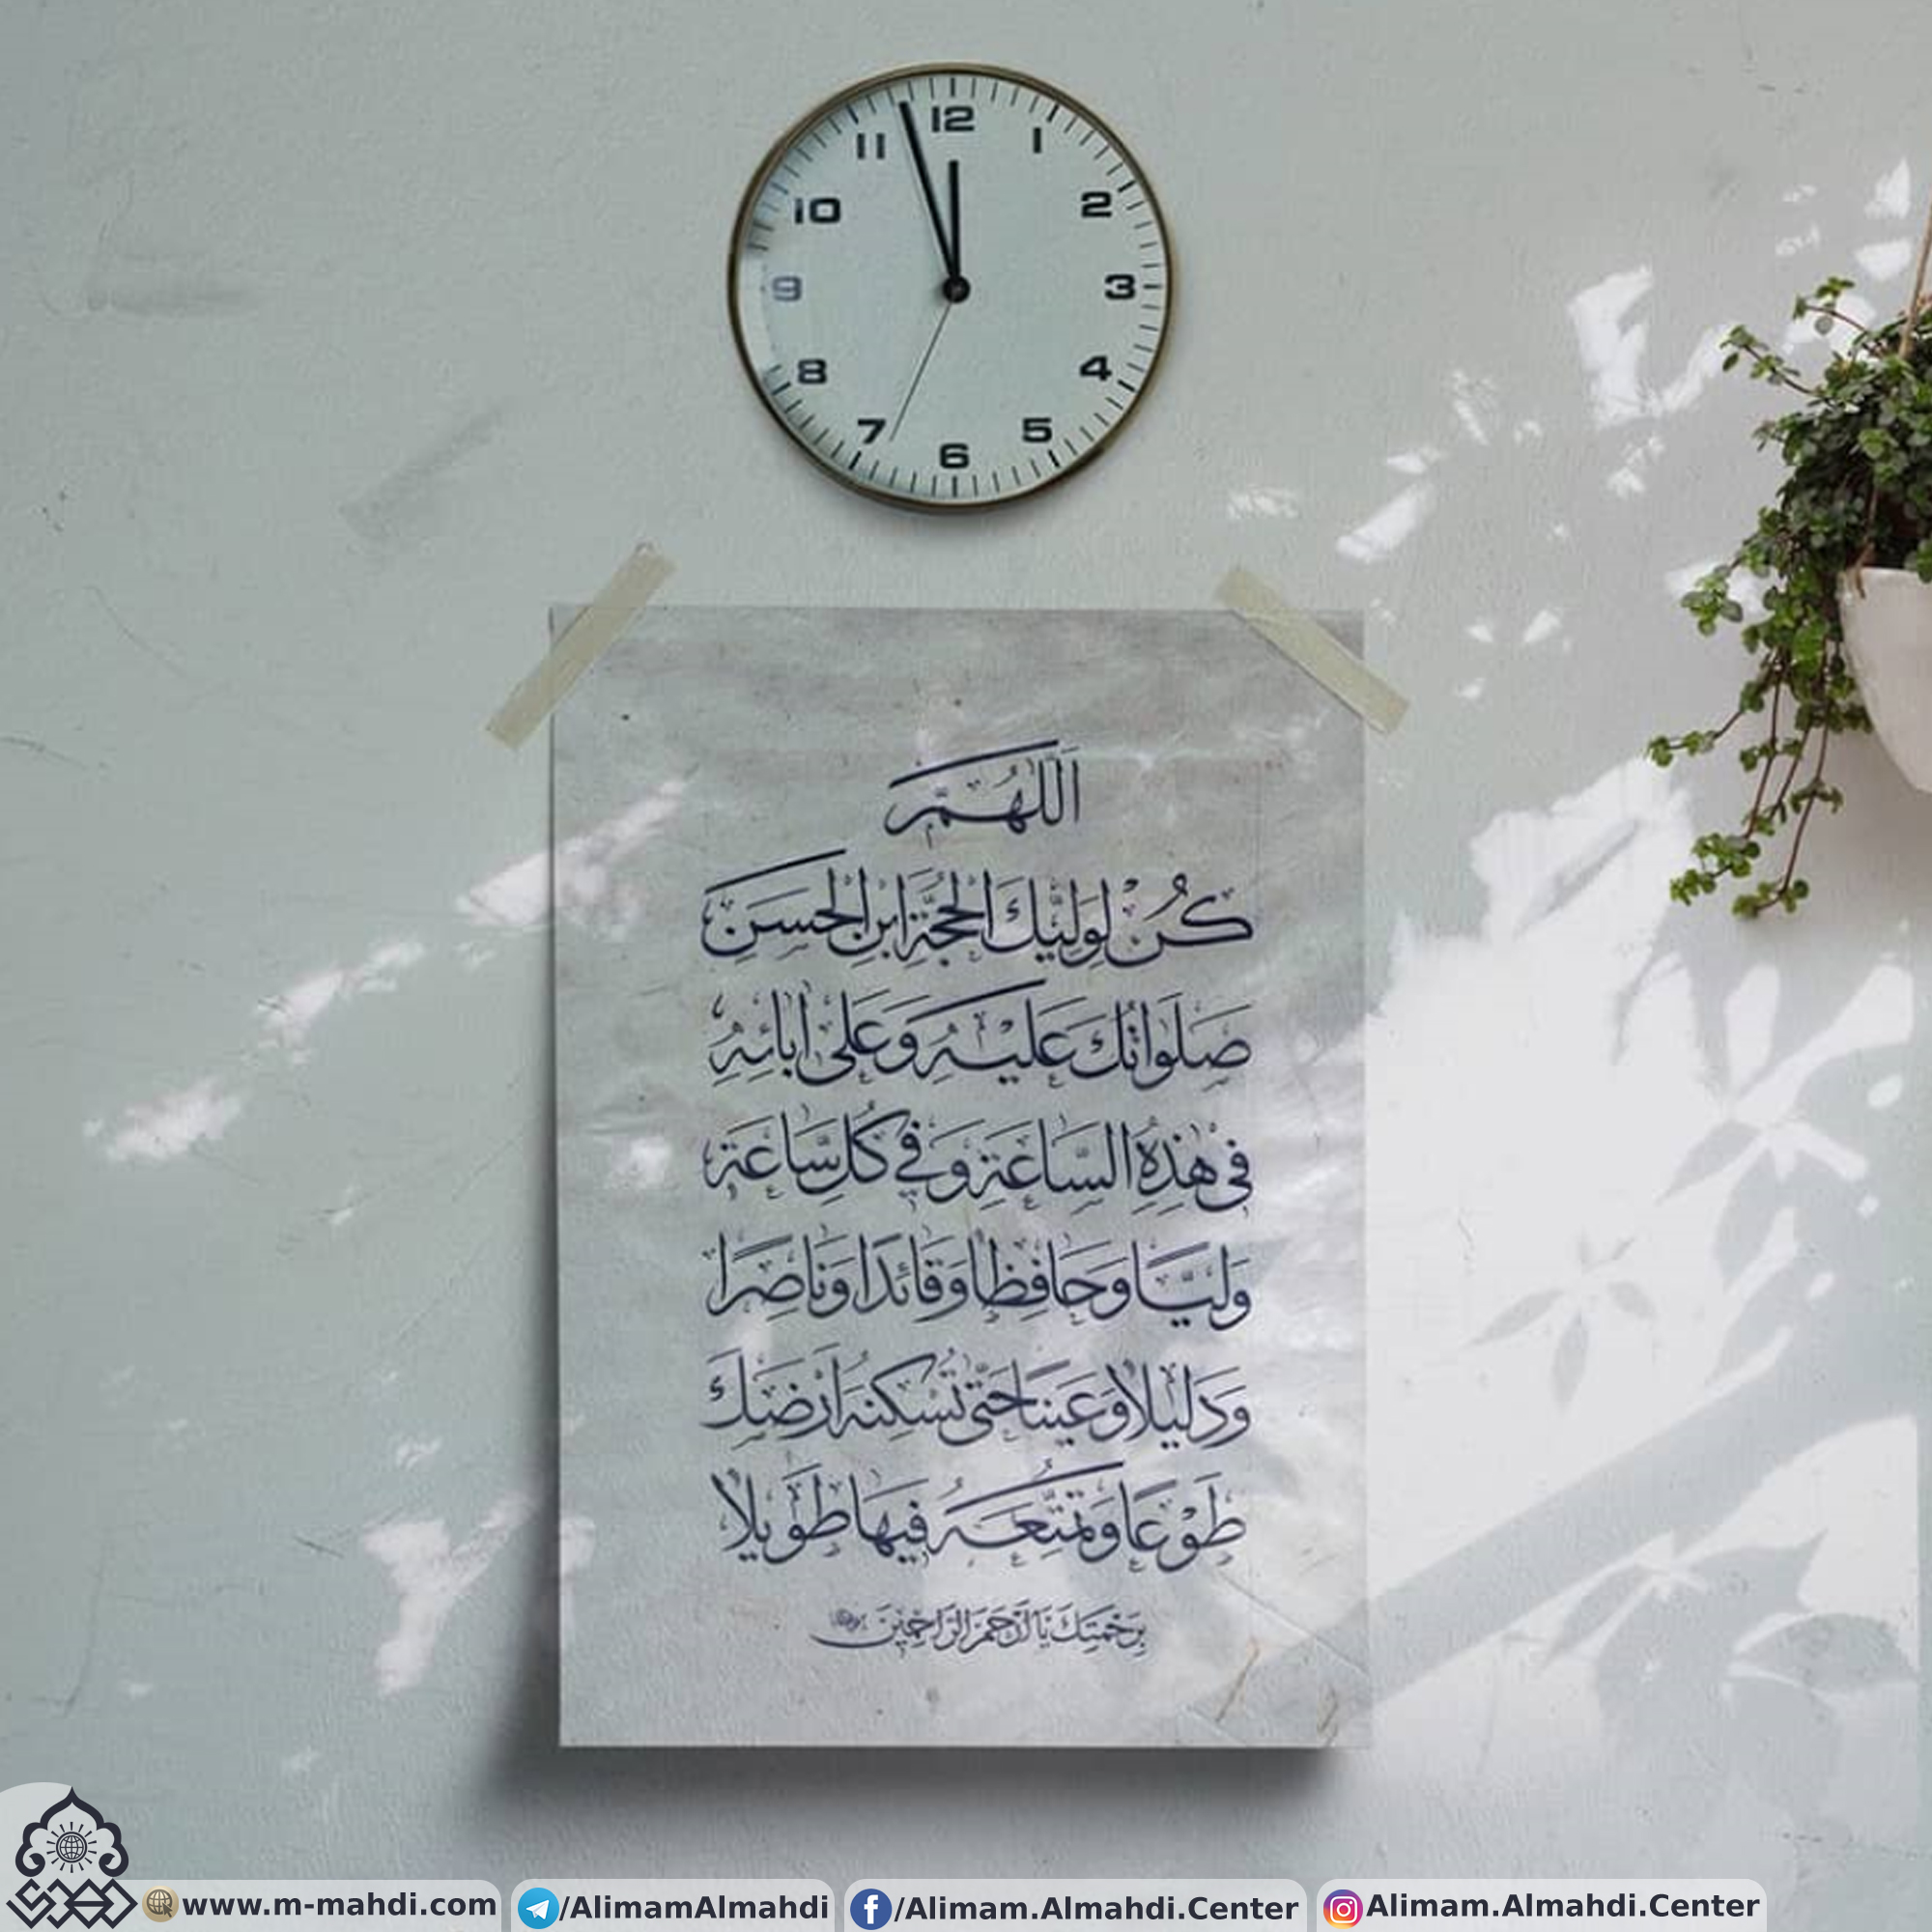 12
11
1
10
2
9
3
8
4
7
5
6
اَللّهُمَّ
كُنْ لِوَلِيِّكَ الْحُجَّةِ ابْنِ الْحَسَنِ
صَلَواتُكَ عَلَيْهِ وَعَلى ابائِهِ
في هذِهِ السَّاعَةِ وَفي كُلِّ سَاعَةٍ
وَلِيًّا وَحَافِظًا وَقائِدًا وَنَاصِرًا
وَدَليلًا وَعَيْنًا حَتّى تُسْكِنَهُ اَرْضَكَ
طَوْعًا وَتُمَتِّعَهُ فيهَا طَويلًا
بِرَحْمَتِكَ يَا اَرْحَمَ الرَّاحِمينَ
www.m-mahdi.com /AlimamAlmahdi /Alimam.Almahdi.Center Alimam.Almahdi.Center